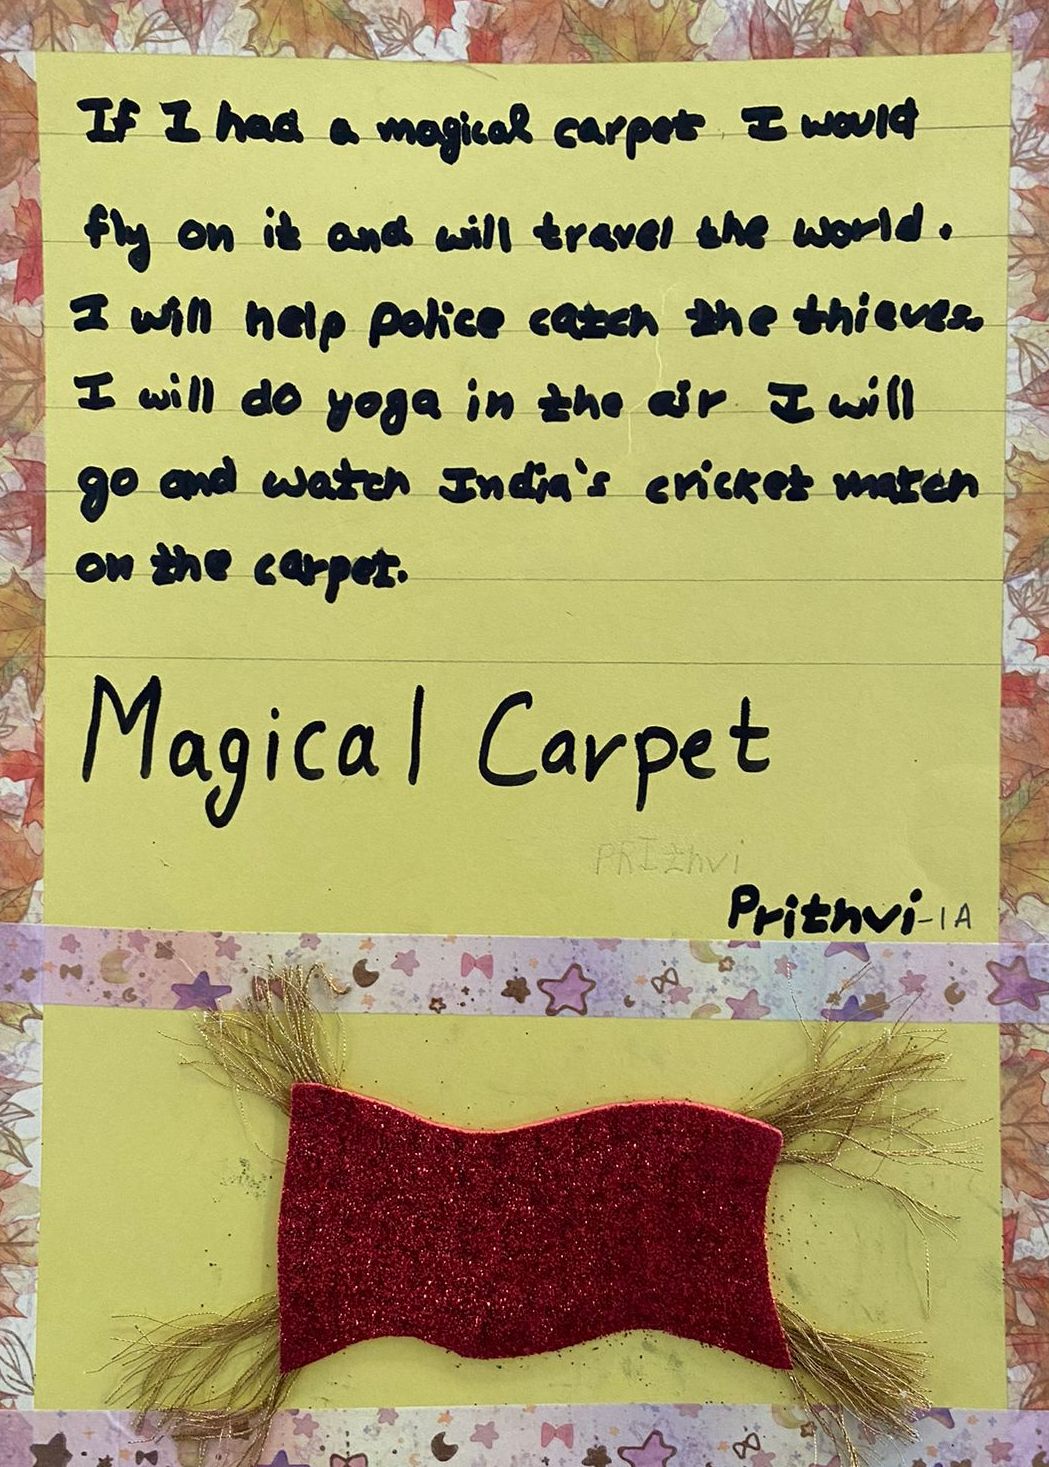 If I had a magical carpet I would
fly on it and will travel the world.
I will help police catch the thieves.
I will do yoga in the air I will
go and watch India's cricket match
on the carpet.
Magical Carpet
PRIthvi
Prithvi-1A